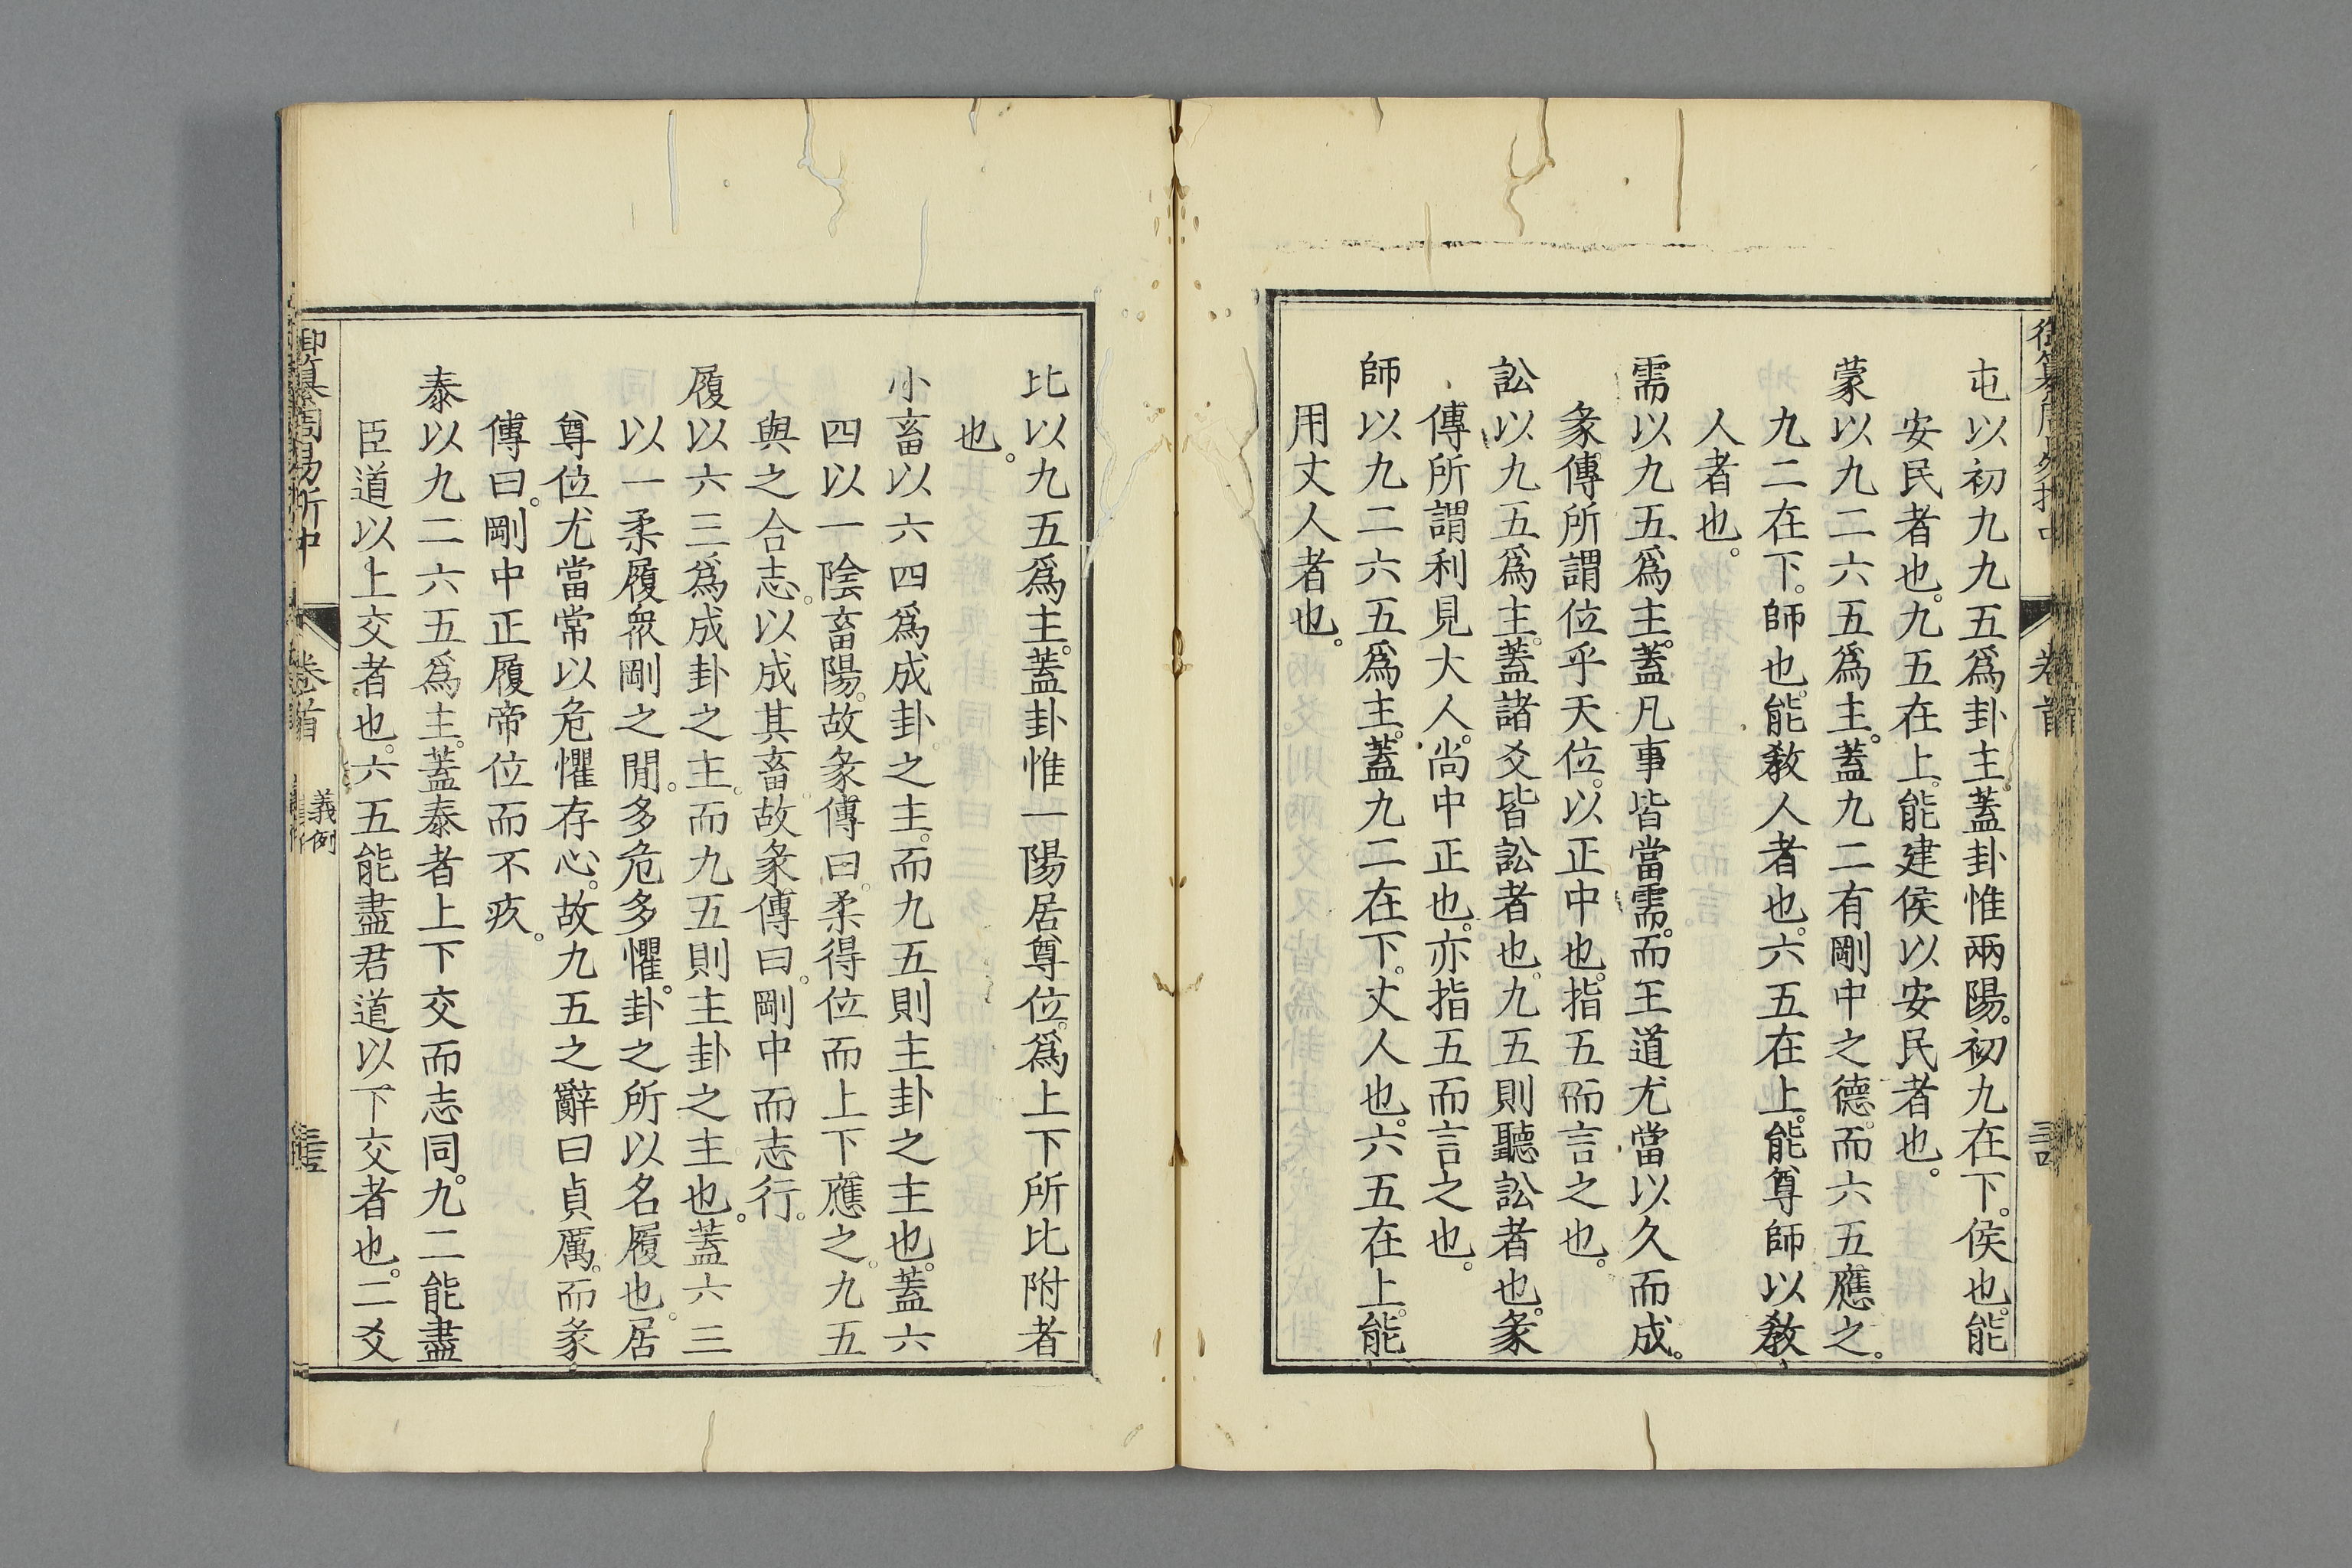 屯以初九九五爲卦主蓋卦惟兩陽。初九在下。侯也。能
安民者也。九五在上。能建侯以安民者也。
蒙以九二六五爲主。蓋九二有剛中之德。而六五應之。
九二在下。師也。能敎人者也。六五在上。能尊師以敎
人者也。
需以九五爲主。蓋凡事皆當需。而王道尤當以久而成。
彖傳所謂位乎天位。以正中也。指五而言之也。
訟以九五爲主。蓋諸爻皆訟者也。九五則聽訟者也。彖
傳所謂利見大人。尚中正也。亦指五而言之也。
師以九二六五爲主。蓋九二在下。丈人也。六五在上。能
用丈人者也。
比以九五爲主。蓋卦惟一陽居尊位。爲上下所比附者
也。
小畜以六四爲成卦之主。而九五則主卦之主也。蓋六
四以一陰畜陽。故彖傳曰。柔得位而上下應之。九五
與之合志。以成其畜故彖傳曰。剛中而志行。
履以六三爲成卦之主。而九五則主卦之主也。蓋六三
以一柔履衆剛之閒。多危多懼。卦之所以名履也。居
尊位尤當常以危懼存心。故九五之辭曰貞厲。而彖
傳曰。剛中正履帝位而不疚。
泰以九二六五爲主。蓋泰者上下交而志同。九二能盡
臣道以上交者也。六五能盡君道以下交者也。二爻
御纂周易折中
卷首
義例